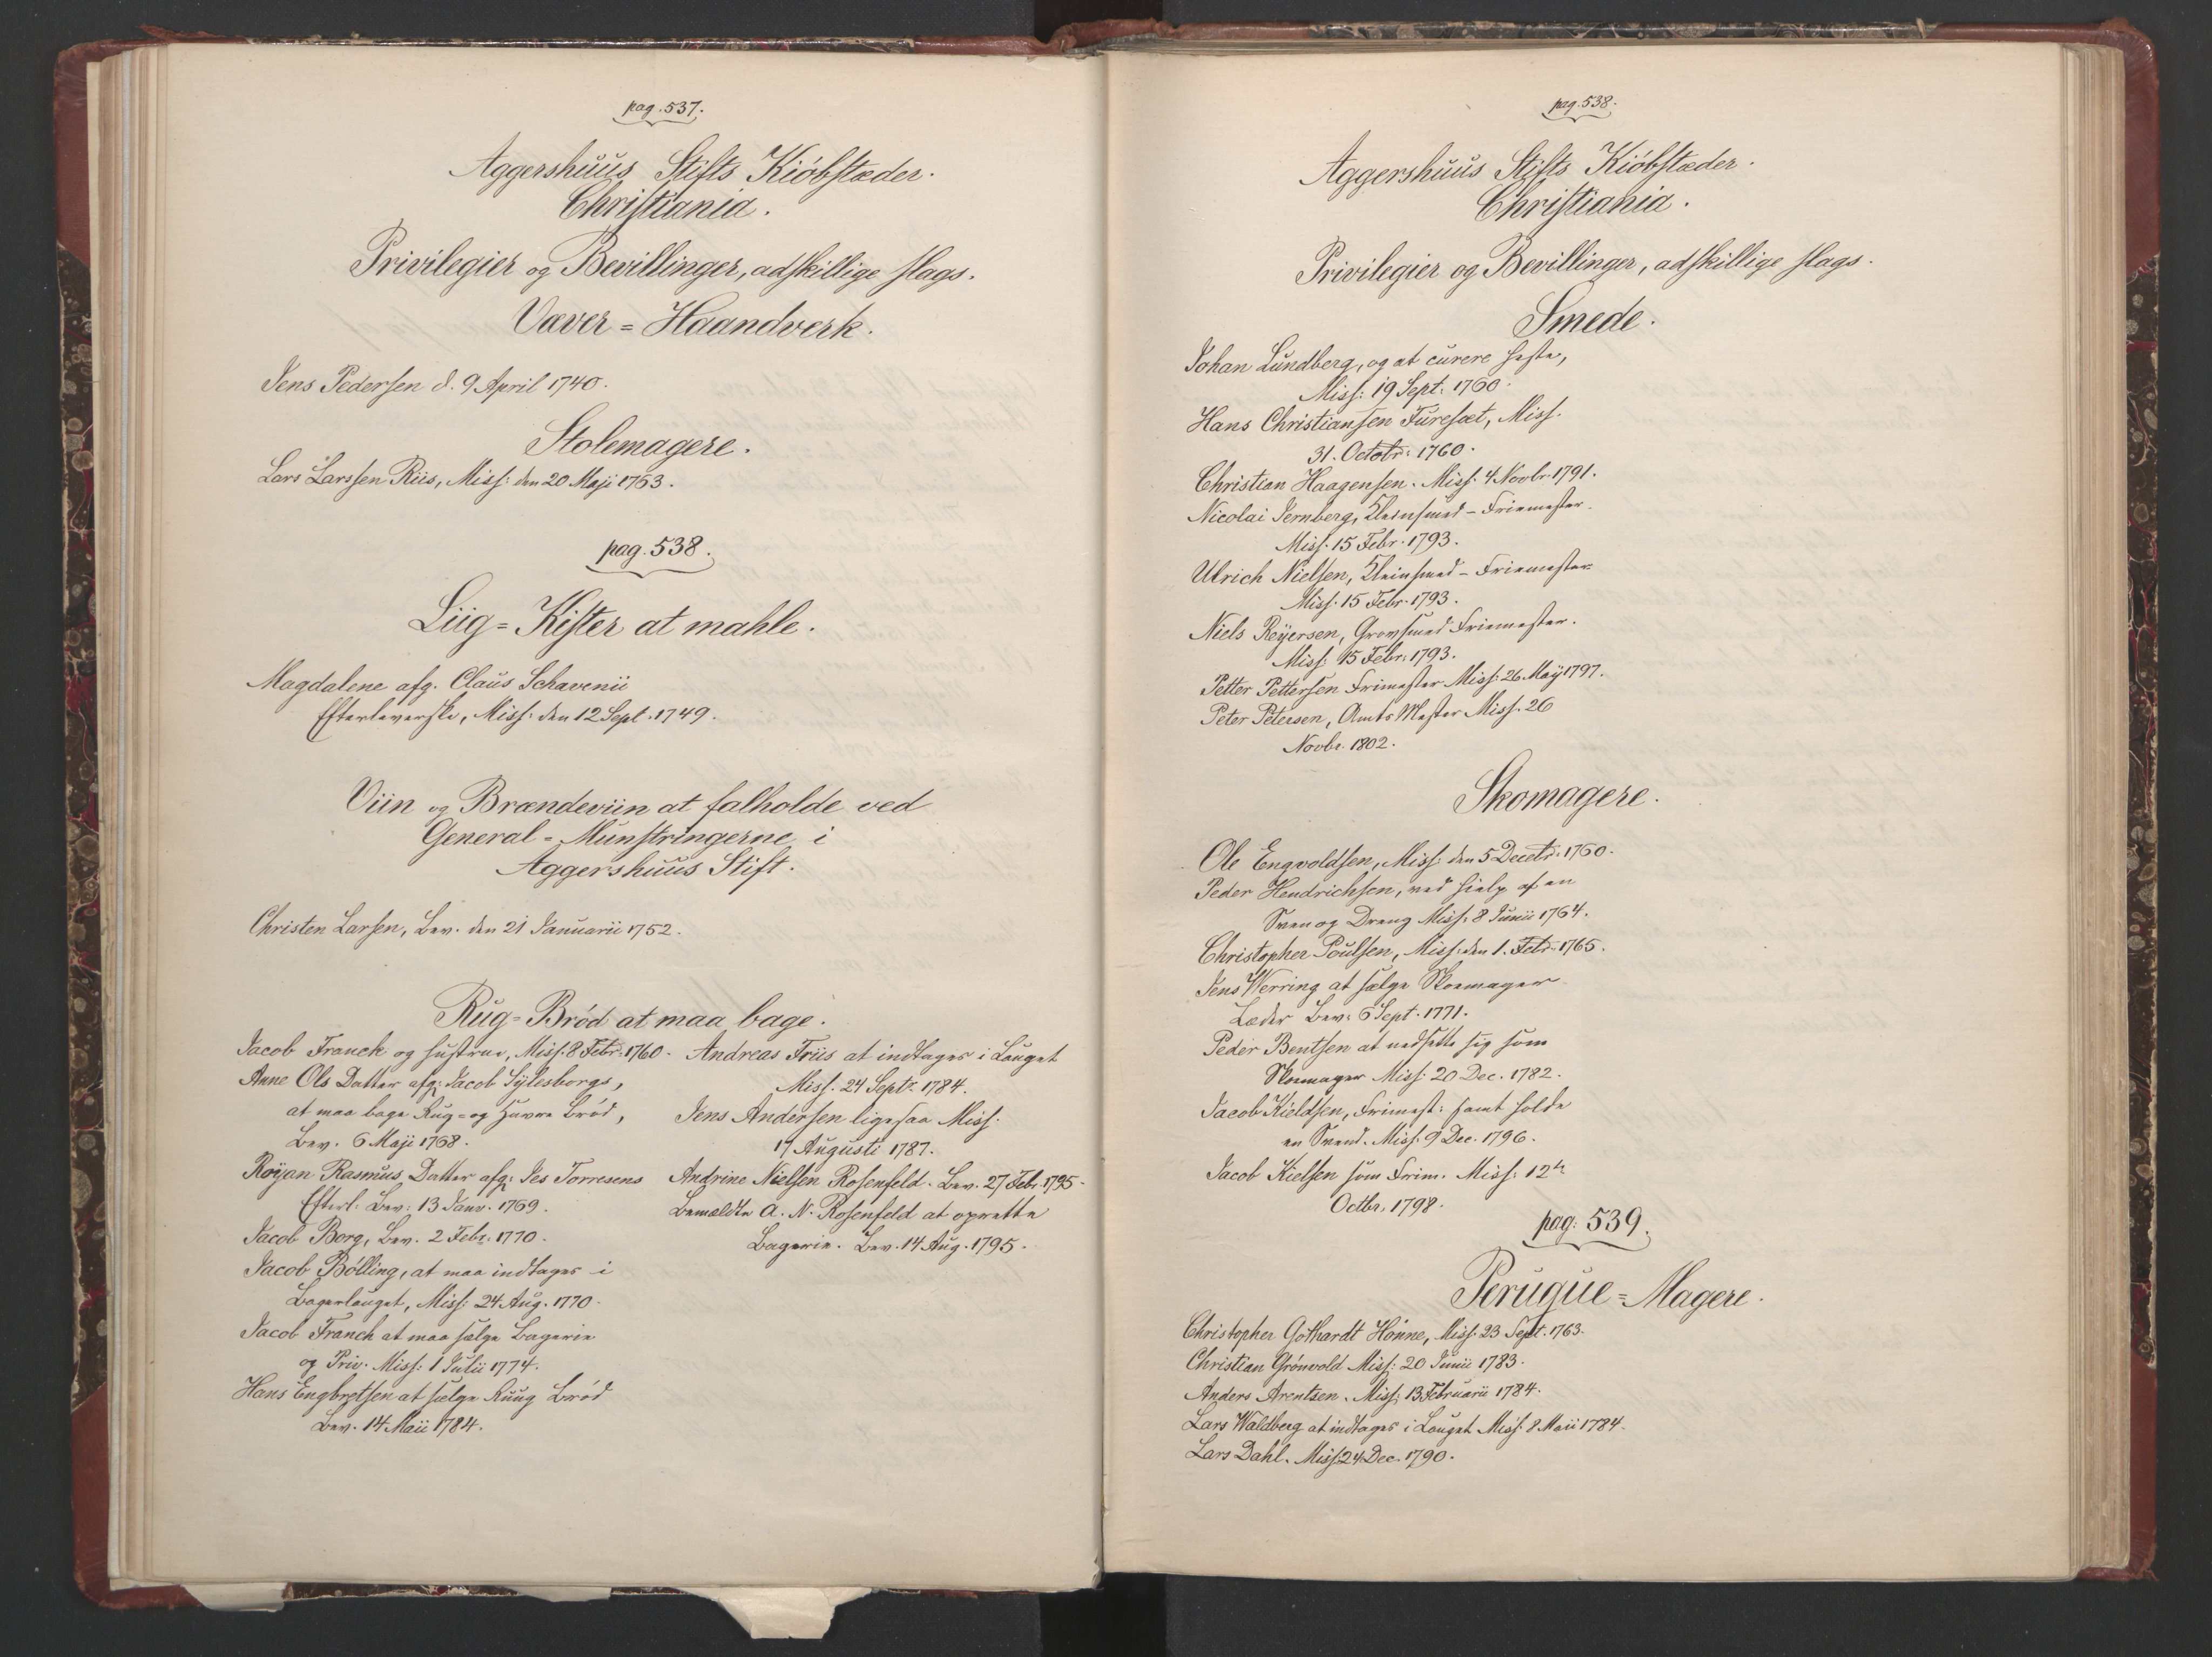 pag. 537.
Aggershuus Stifts Kiöbstæder.
Christiania.
Privilegier og Bevillinger, adskillige slags.
Væver=Haandverk.
Jens Pedersen d. 9 April 1740.
Stolemagere.
Lars Larssen Riis, Miss: den 20 Maji 1763.
pag. 538.
Liig=Kister at mahle.
Magdalene afg. Claus Schavenii
Efterleverske, Miss: den 12 Sept. 1749.
Viin og Brændeviin at falholde ved
General=Munstringerne i
Aggershuus Stift.
Christen Larsen, Bev. den 21 Januarii 1752.
Rug=Brød at maa bage.
Jacob Franck og Hustrue, Miss. 8 Febr: 1760.
Anne Ols Datter afg: Jacob Sylesborgs,
at maa bage Rug= og Havre Brød,
Bev. 6 Maji 1768.
Röyan Rasmus Datter afg: Jes Torresens
Efterl. Bev: 13 Janv. 1769.
Jacob Borg, Bev. 2 Febr. 1770.
Jacob Bölling, at maa indtages i
Bagerlauget, Miss: 24 Aug. 1770.
Jacob Franch at maa sælge Bagerie
og Priv. Miss: 1 Julii 1774.
Hans Engbretsen at sælge Ruug Brød
Bev. 14 Maii 1784.
Andreas Friis at indtages i Lauget
Miss. 24 Septr. 1784.
Jens Andersen ligesaa Miss.
17 Augusti 1787.
Andrine Nielsen Rosenfeld. Bev. 27 Febr. 1795.
Bemældte A. N. Rosenfeld at oprette
Bagerie. Bev. 14 Aug. 1795.
pag. 538.
Aggershuus Stifts Kiöbstæder.
Christiania.
Privilegier og Bevillinger, adskillige slags.
Smede.
Johan Lundberg, og at curere Heste,
Miss: 19 Sept: 1760.
Hans Christiansen Furesæt, Miss.
31. Octobr: 1760.
Christian Haagensen. Miss. 4 Novbr. 1791.
Nicolai Jernberg, Kleinsmed-Friemester.
Miss. 15 Febr. 1793.
Ulrich Nielsen, Kleinsmed-Friemester
Miss. 15 Febr. 1793.
Niels Reÿersen, Grovsmed Friemester.
Miss: 15 Febr: 1793.
Petter Pettersen Frimester Miss: 26 Maÿ 1797.
Peter Petersen, Amts Mester Miss. 26
Novbr. 1802.
Skomagere.
Ole Engvoldsen, Miss: den 5 Decebr: 1760.
Peder Hendrichsen, ved Hielp af en
Sven og Dreng Miss: 8 Junii 1764.
Christopher Poulsen, Miss: den 1. Febr: 1765.
Jens Werring at sælge Skoemager
Læder Bev: 6 Sept. 1771.
Peder Bentsen at nedsette sig som
Skoemager Miss: 20 Dec. 1782.
Jacob Kieldsen, Frimest: samt holde
en Svend. Miss. 9 Dec. 1796.
Jacob Kielsen som Frim. Miss: 12te
Octbr. 1798.
pag: 539.
Peruque=Magere.
Christopher Gothardt Hönne, Miss. 23 Sept. 1763.
Christian Grönvold Miss: 20 Junii 1783.
Anders Arentsen. Miss: 13 Februarii 1784.
Lars Waldberg at indtages i Lauget Miss. 8 Maii 1784.
Lars Dahl. Miss. 24 Dec. 1790.